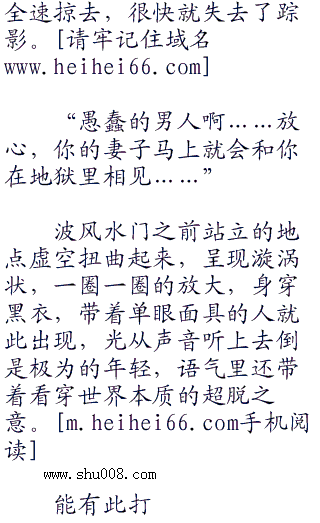 全速掠去，很快就失去了踪
影。[请牢记住域名
www.heihei66.com]
“愚蠢的男人啊……放
心，你的妻子马上就会和你
在地狱里相见……”
波风水门之前站立的地
点虚空扭曲起来，呈现漩涡
状，一圈一圈的放大，身穿
黑衣，带着单眼面具的人就
此出现，光从声音听上去倒
是极为的年轻，语气里还带
着看穿世界本质的超脱之
意。[m.heihei66.com手机阅
读]
www.shu008.com
能有此打